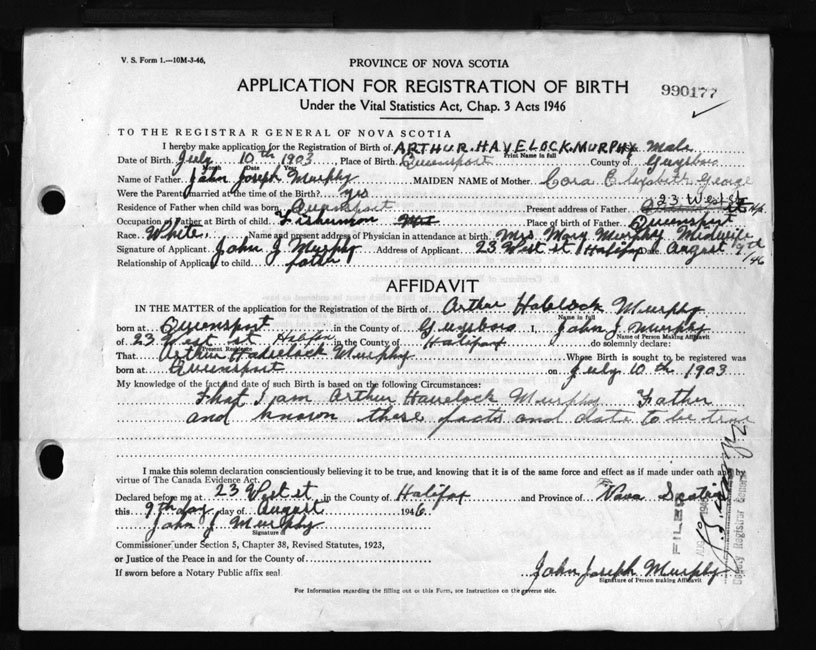 V. S. Form 1.—10M-3-46,
PROVINCE OF NOVA SCOTIA
APPLICATION FOR REGISTRATION OF BIRTH
990177
Under the Vital Statistics Act, Chap. 3 Acts 1946
TO THE REGISTRAR GENERAL OF NOVA SCOTIA
I hereby make application for the Registration of Birth of ARTHUR. HAVELOCK. MURPHY Male
Print Name in full
Date of Birth July 10th 1903 Place of Birth Queensport County of Guysboro
Date Year
Name of Father John Joseph Murphy MAIDEN NAME of Mother Cora Elizabeth George
Were the Parent married at the time of the Birth? yes
23 West st
Residence of Father when child was born Queensport Present address of Father
Occupation of Father at Birth of child Fisherman Place of Birth of Father Queensport
Race White. Name and present address of Physician in attendance at birth Mrs Mary Murphy Midwife
Signature of Applicant John J Murphy Address of Applicant 23 West st Halifax August 9th /46
Relationship of Applicant to child father
AFFIDAVIT
IN THE MATTER of the application for the Registration of Birth of Arthur Habelock Murphy
Name in full
born at Queensport in the County of Guysboro I, John J Murphy
Name of Person Making Affidavit
of 23 West st Halifax in the County of Halifax do solemnly declare:
Present Residence
That Arthur Havelock Murphy Whose Birth is sought to be registered was
born at Queensport on July 10th 1903
My knowledge of the fact and date of such Birth is based on the following Circumstances:
That I am Arthur Havelock Murphy Father
and know these facts and date to be true
I make this solemn declaration conscientiously believing it to be true, and knowing that it is of the same force and effect as if made under oath and by
virtue of The Canada Evidence Act.
Declared before me at 23 West st in the County of Halifax and Province of Nova Scotia
this 9th day day of August 1946
John J Murphy
Signature of
Commissioner under Section 5, Chapter 38, Revised Statutes, 1923,
or Justice of the Peace in and for the County of
If sworn before a Notary Public affix seal
John Joseph Murphy
Signature of Person making Affidavit
For Information regarding the filling out of this Form, see Instructions on the reverse side.
FILED
Deputy Registrar General